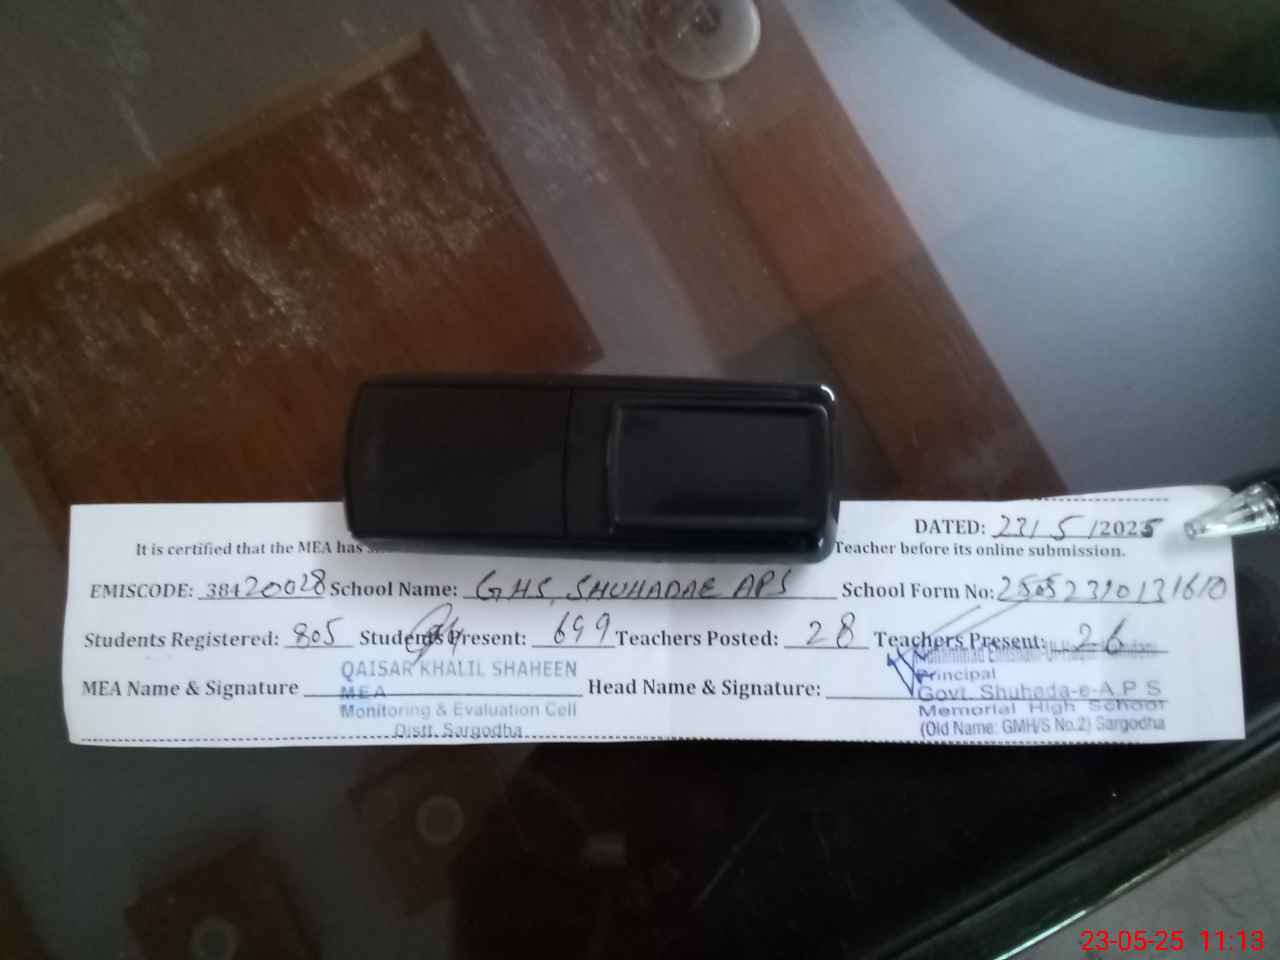 DATED: 23/5/2025
It is certified that the MEA has Teacher before its online submission.
EMISCODE: 38420028 School Name: GHS, SHUHADAE APS School Form No: 25052310131610
Students Registered: 805 Students Present: 699 Teachers Posted: 28 Teachers Present: 26
QAISAR KHALIL SHAHEEN
MEA Name & Signature MEA Head Name & Signature:
Monitoring & Evaluation Cell
Distt. Sargodha
Principal
Govt. Shuhada-e-A.P S
Memorial High School
(Old Name: GMH/S No.2) Sargodha
23-05-25 11:13